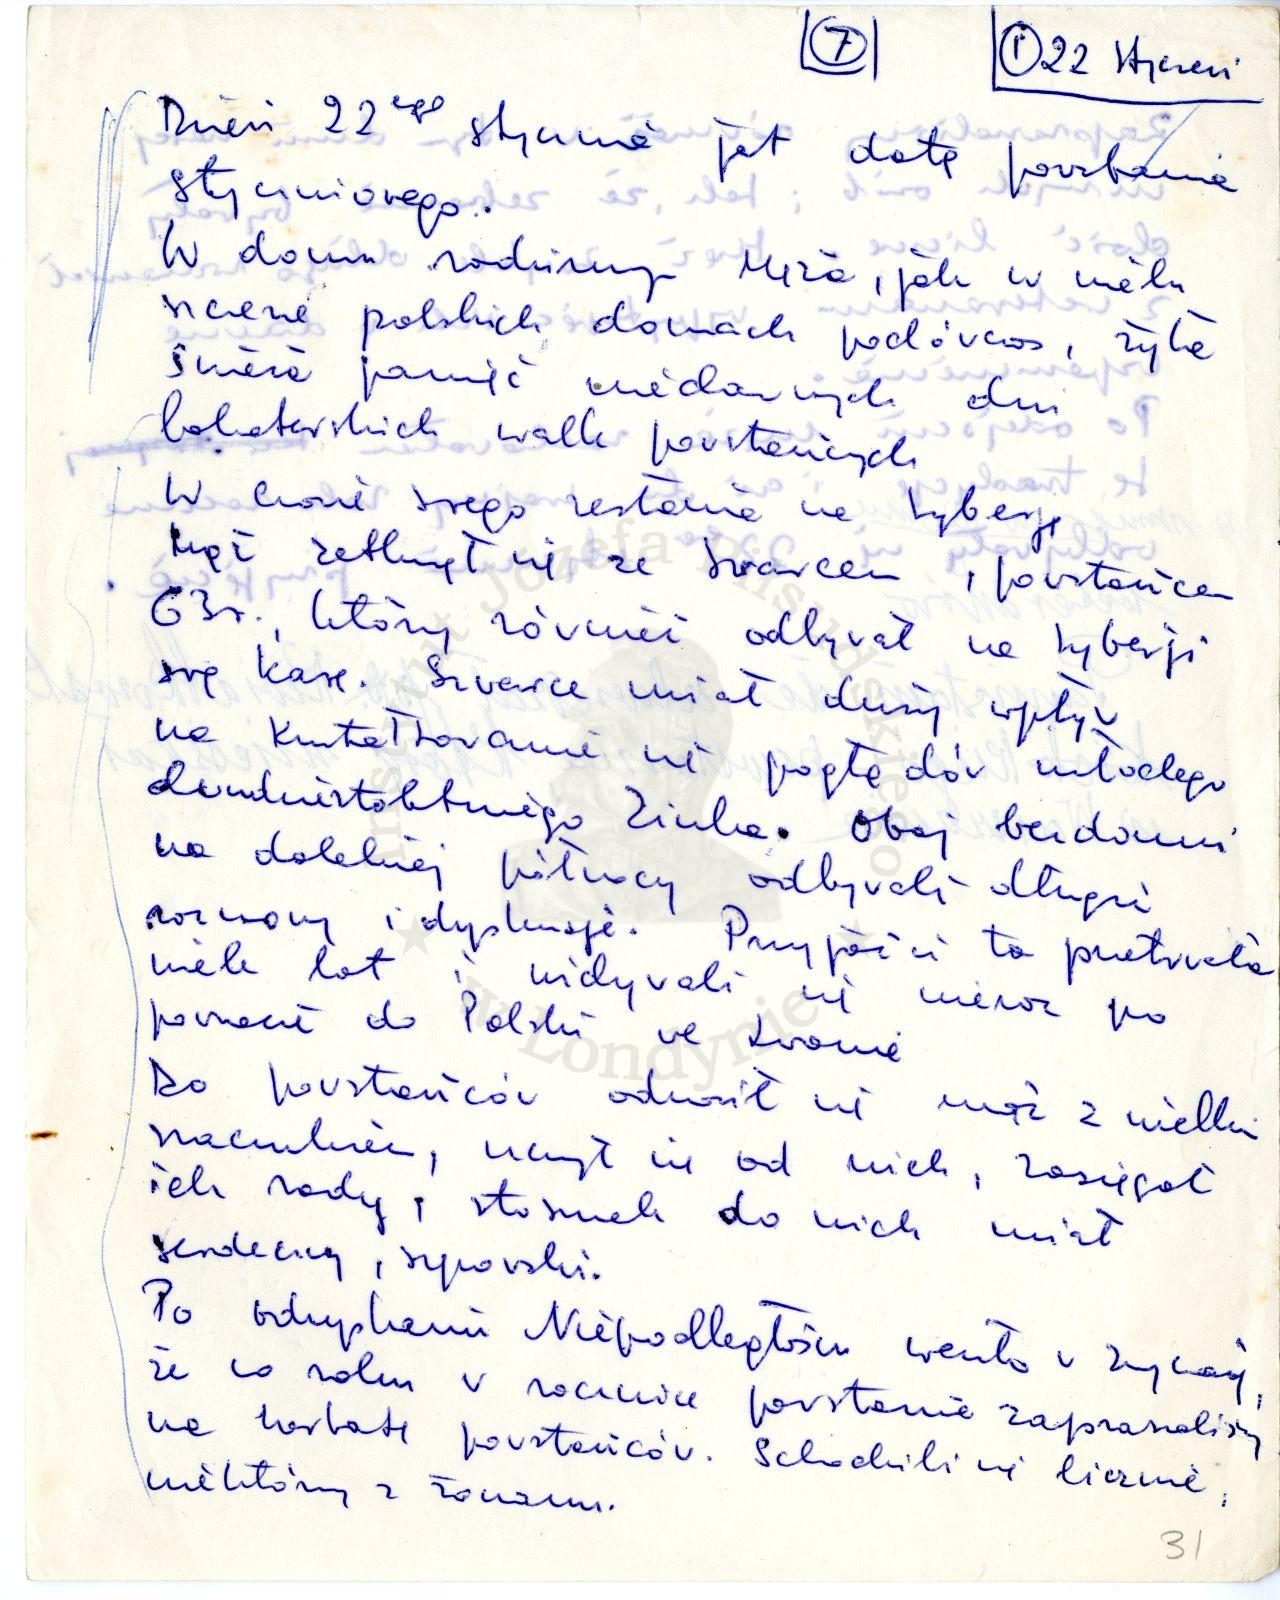 7
1) 22 Styczeń
Dzień 22ego stycznia jest datą powstania
Styczniowego.
W domu rodzinnym Męża, jak w wielu
szczerze polskich domach podówczas, żyła
świeża pamięć niedawnych dni
bohaterskich walk powstańczych
W czasie swego zesłania na Syberję
Mąż zetknął się ze Szwarcem, powstańcem
63r., który również odbywał na Syberji
swą karę. Szwarce miał duży wpływ
na kształtowanie się poglądów młodego
dwudziestoletniego Ziuka. Obaj bezdomni
na dalekiej północy odbywali długie
rozmowy i dyskusje. Przyjaźń ta przetrwała
wiele lat i widywali się nieraz po
powrocie do Polski we Lwowie
Do powstańców odnosił się mąż z wielkim
szacunkiem, uczył się od nich, zasięgał
ich rady, i stosunek do nich miał
serdeczny, synowski.
Po odzyskaniu Niepodległości weszło w zwyczaj,
że co roku w rocznicę powstania zapraszaliśmy
na herbatę powstańców. Schodzili się licznie,
niektórzy z żonami.
31
Instytut Józefa Piłsudskiego
w Londynie